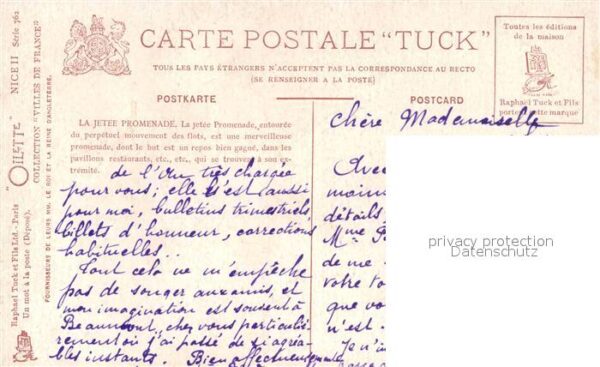 CARTE POSTALE "TUCK"
TOUS LES PAYS ÉTRANGERS N'ACCEPTENT PAS LA CORRESPONDANCE AU RECTO
(SE RENSEIGNER A LA POSTE)
POSTKARTE
POSTCARD
Toutes les éditions
de la maison
Raphael Tuck et Fils
portent cette marque
"OILETTE" NICE II Série 762
COLLECTION "VILLES DE FRANCE"
FOURNISSEURS DE LEURS MM. LE ROI ET LA REINE D'ANGLETERRE.
Raphael Tuck et Fils Ltd - Paris
Un mot à la poste (Déposé).
LA JETEE PROMENADE. La jetée Promenade, entourée
du perpétuel mouvement des flots, est une merveilleuse
promenade, dont le but est un repos bien gagné, dans les
pavillons restaurants, etc., etc., qui se trouvent à son ex-
trémité.
de l'An très chargée
pour vous; elle l'est aussi
pour moi, bulletins trimestriels,
billets d'honneur, corrections
habituelles..
Tout cela ne m'empêche
pas de songer aux amis, et
mon imagination est souvent à
Beaumont, chez vous particuliè-
rement où j'ai passé de si agréa-
bles instants. Bien affectueusement
Chère Mademoiselle
Avec
maint
détails
Mme
de me
votre
que vo
n'est
Je n'i
privacy protection
Datenschutz